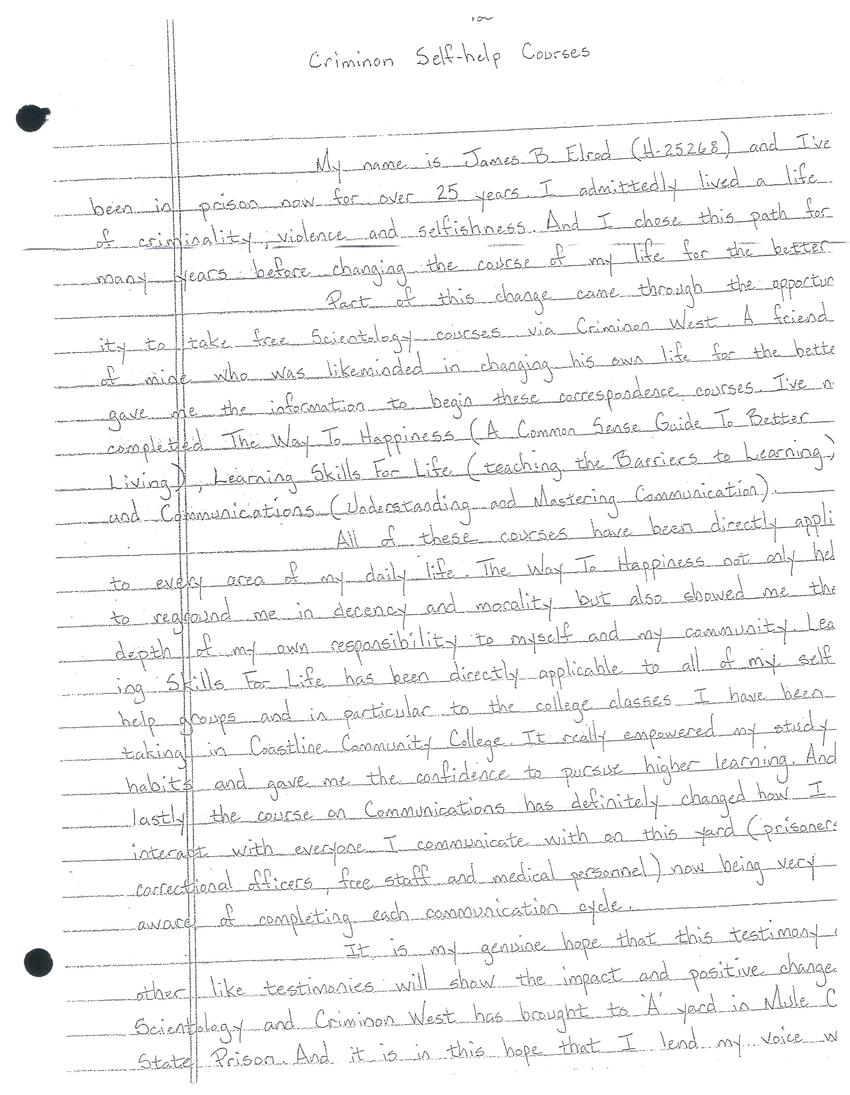 Criminon Self-help Courses
My name is James B. Elrod (H-25268) and I've
been in prison now for over 25 years. I admittedly lived a life
of criminality, violence and selfishness. And I chose this path for
many years before changing the course of my life for the better
Part of this change came through the opportun
ity to take free Scientology courses via Criminon West. A friend
of mine who was likeminded in changing his own life for the bette
gave me the information to begin these correspondence courses. I've n
completed The Way To Happiness (A Common Sense Guide To Better
Living), Learning Skills For Life (teaching the Barriers to Learning,)
and Communications (Understanding and Mastering Communication).
All of these courses have been directly appli
to every area of my daily life. The Way To Happiness not only hel
to reground me in decency and morality but also showed me the
depth of my own responsibility to myself and my community Lea
ing Skills For Life has been directly applicable to all of my self
help groups and in particular to the college classes I have been
taking in Coastline Community College. It really empowered my study
habits and gave me the confidence to pursue higher learning. And
lastly the course on Communications has definitely changed how I
interact with everyone I communicate with on this yard (prisoners
correctional officers, free staff and medical personnel) now being very
aware of completing each communication cycle.
It is my genuine hope that this testimony
other like testimonies will show the impact and positive change
Scientology and Criminon West has brought to 'A' yard in Mule C
State Prison. And it is in this hope that I lend my voice w